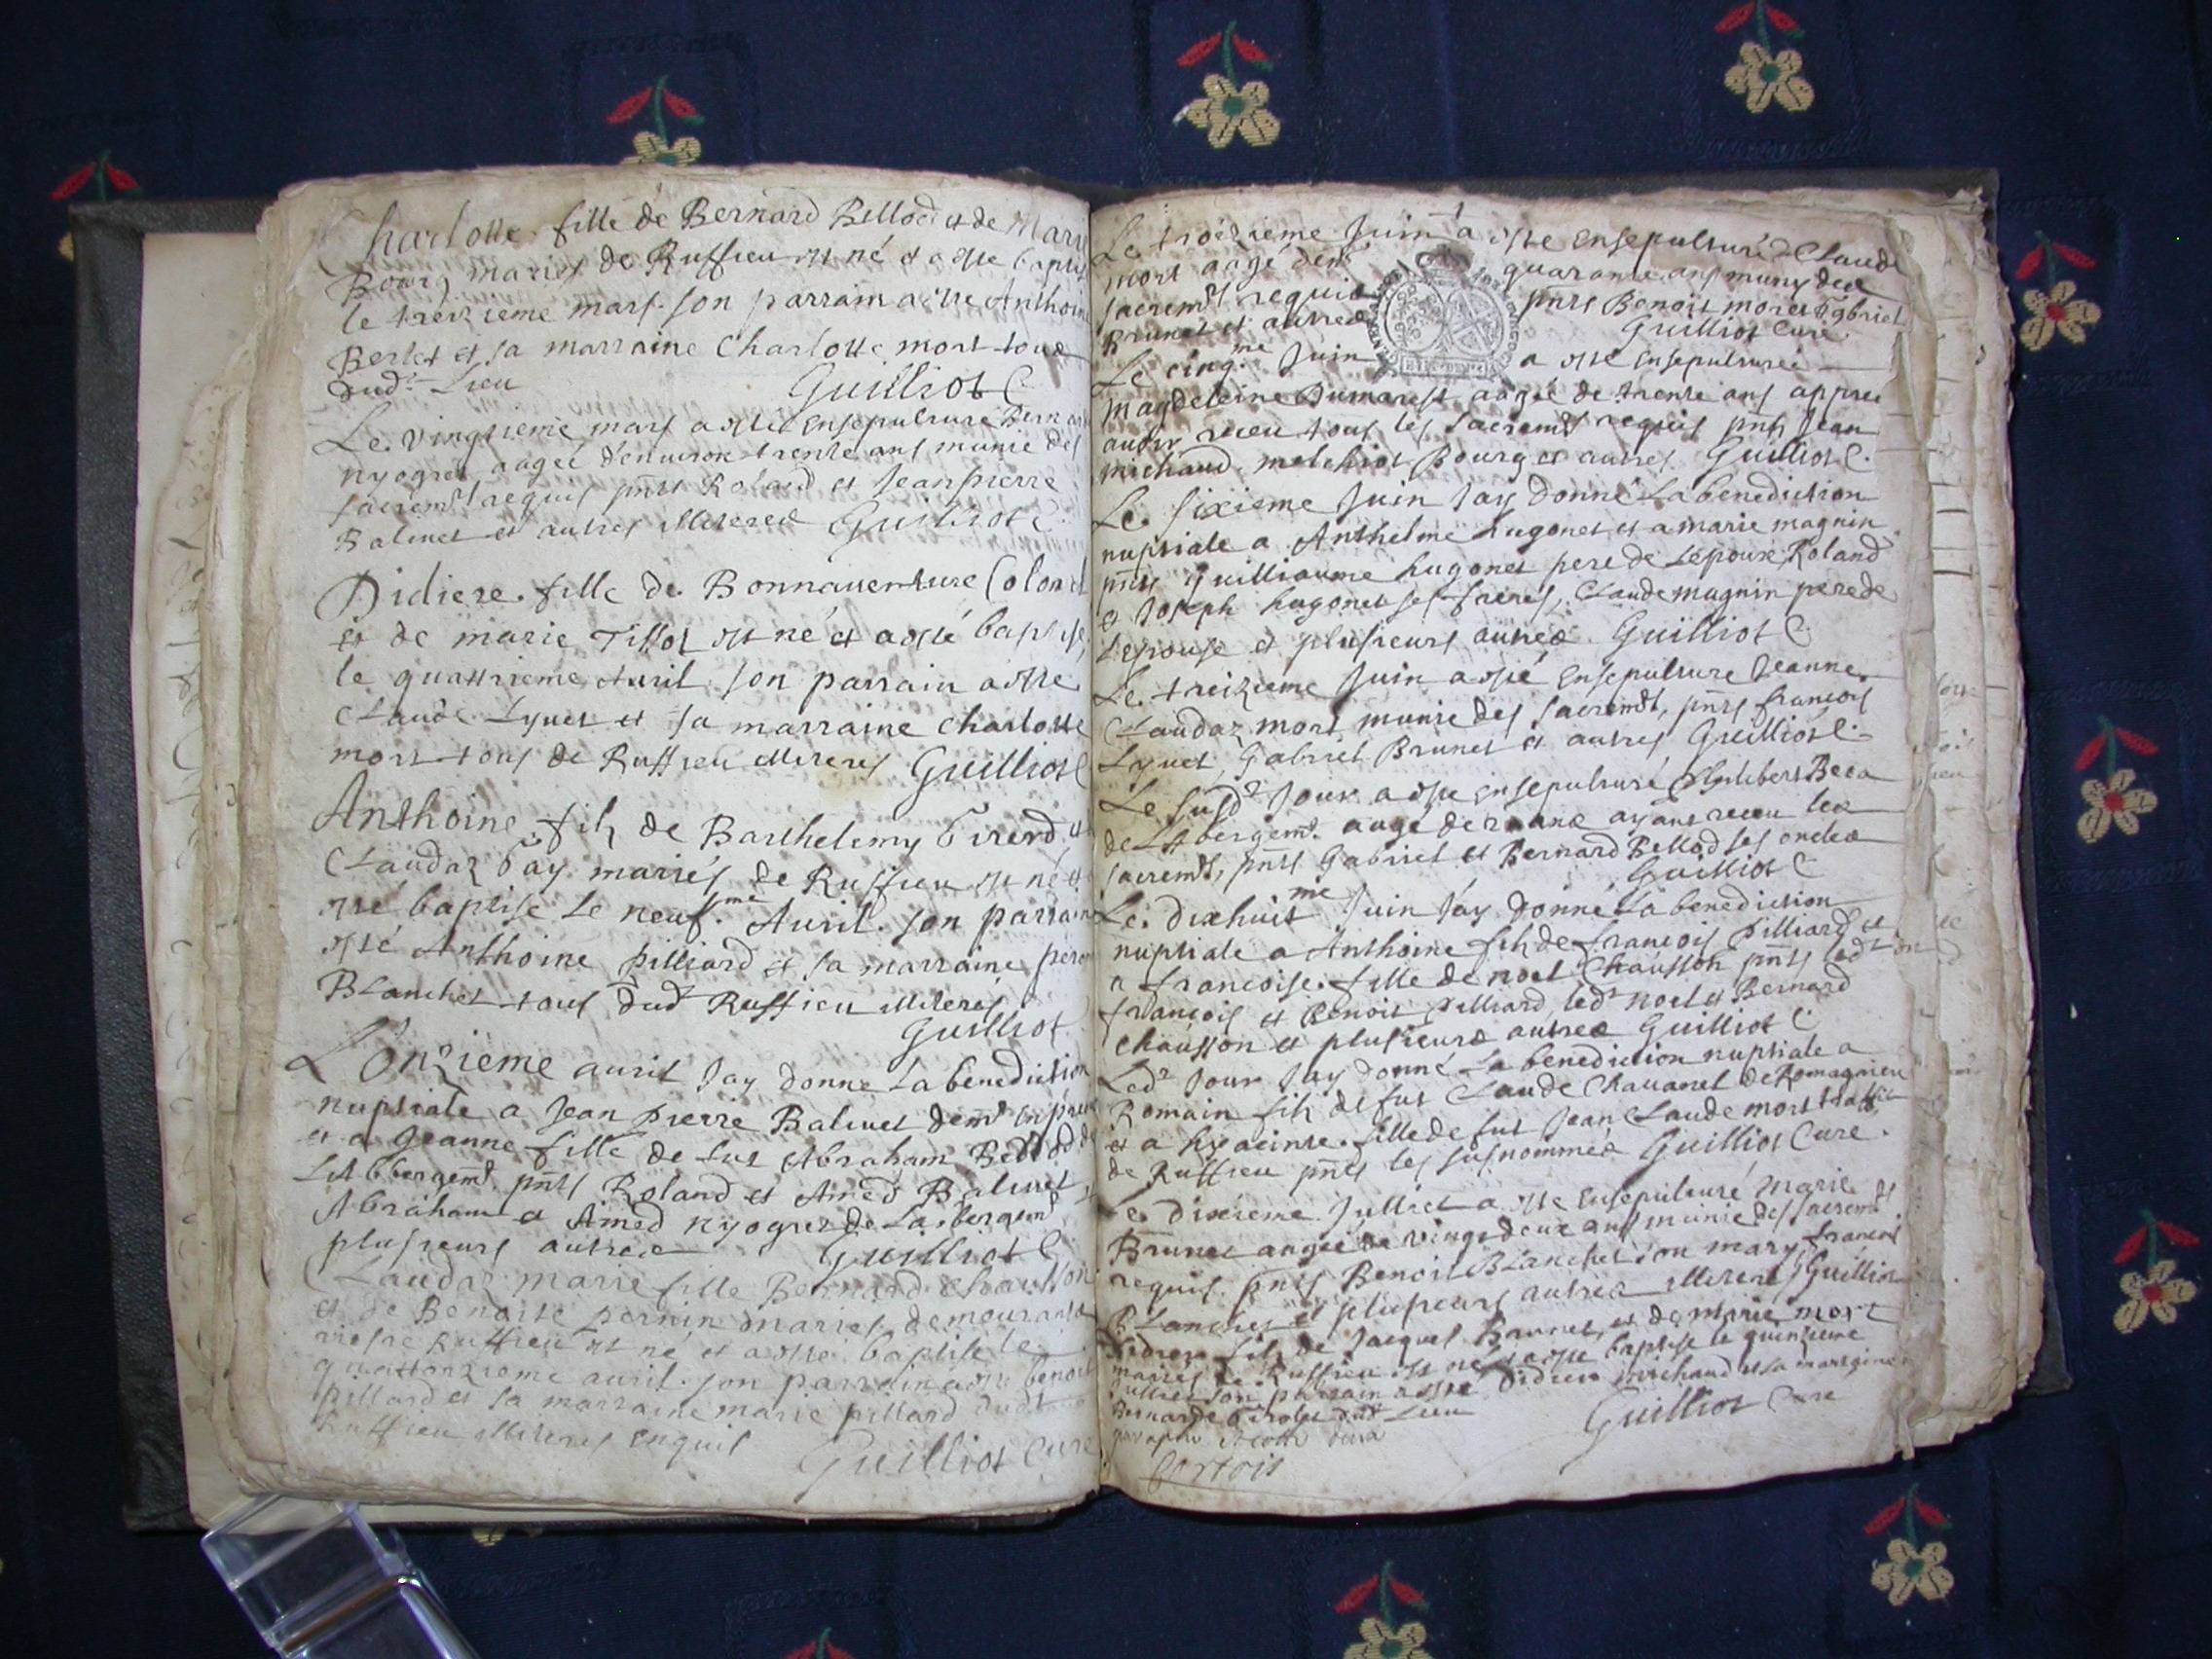 Charlotte fille de Bernard Bellod et de Marie
Bourg mariés de Ruffieu est né et a esté baptisé
le treizieme mars son parrain a esté Anthoine
Berlet et sa marraine Charlotte mort tous
dud. Lieu Guilliot C
Le vingtieme mars a esté ensepulturé Bernard
nyogret aagée d'environ trente ans munie des
sacremts requis pnts Roland et Jeanpierre
Balivet et autres illiterés Guilliot C
Didiere fille de Bonnaventure Colonel
et de marie Tissot est né et a esté baptisé
le quattrieme Avril son parrain a esté
Claude Lyuet et sa marraine Charlotte
mort tous de Ruffieu illiterés Guilliot C
Anthoine fils de Barthelemy Girerd et
Claudaz Fay mariés de Ruffieu est né et
esté baptisé le neuf.me Avril son parrain
esté Anthoine pilliard et sa marraine
Blanchet tous dud Ruffieu illiterés
Guilliot
L'onzieme avril Jay donné La benediction
nuptiale a Jean pierre Balivet demt
et a Jeanne fille de fut Abraham
Roland et Amed Balivet
Abraham et Aimed nyogret de Labergemt
plusieurs autres Guilliot C
Claudaz marie fille Bernard Chausson
et de Benoite pernin mariés demeurants
riesre Ruffieu est né et a esté baptisé le
quattorzieme avril son parrain a esté benoit
pillard et sa marraine marie pillard dudt
Ruffieu illiterés enquis Guilliot Curé
Le troizieme Juin a esté ensepulturé Claude
mort aagé de quarante ans muny des
sacremts requis pnts Benoit moret Gabriel
Brunet et autres Guilliot Curé
Le cinq.me Juin a esté ensepulturée
magdeleine Dumarest aagée de trente ans apprés
avoir receu tous les sacremts requis pnts Jean
michaud melchiot Bourg et autres Guilliot C.
Le sixieme Juin Jay donné La benediction
nuptiale a Anthelme hugonet et a marie magnin
pnts Guilliaume hugonet pere de Lepoux Roland
et Joseph hugonet ses freres, Claude magnin pere de
Lepouse et plusieurs autres Guilliot C
Le treizieme Juin a esté ensepulturé Jeanne
Claudaz mort munie des sacremts, pnts françois
Lyuet Gabriel Brunet et autres Guilliot C
Le susdt Jour a esté ensepulturé
aagé de ayant receu les
sacremts, pnts Gabriel et Bernard Bellod ses oncles
Guilliot C
Le dixhuit me Juin Jay donné La benediction
nuptiale a Anthoine fils de françois pilliard et
a françoise fille de noel Chausson pnts ledt
françois et Benoit pilliard, ledt noel et Bernard
Chausson et plusieurs autres Guilliot C
Ledt Jour Jay donné La benediction nuptiale a
Romain fils de fut Claude Chavanel de Romagnieu
et a hyacinte fille de fut Jean Claude mort
de Ruffieu pnts les susnommés Guilliot Curé
Le dixieme Julliet a esté ensepulturé marie
Brunet aagée de vingt deux ans munie des sacremts
requis pnts Benoit Blanchet son mary, francois
Blanchet et plusieurs autres illiterés Guilliot
Didier fils de Jacques Brunet et de marie mort
mariés de Ruffieu est né et a esté baptisé le quinzieme
Julliet son parrain a esté Didier michaud et sa marraine
Bernarde Girolet dud Lieu Guilliot Curé